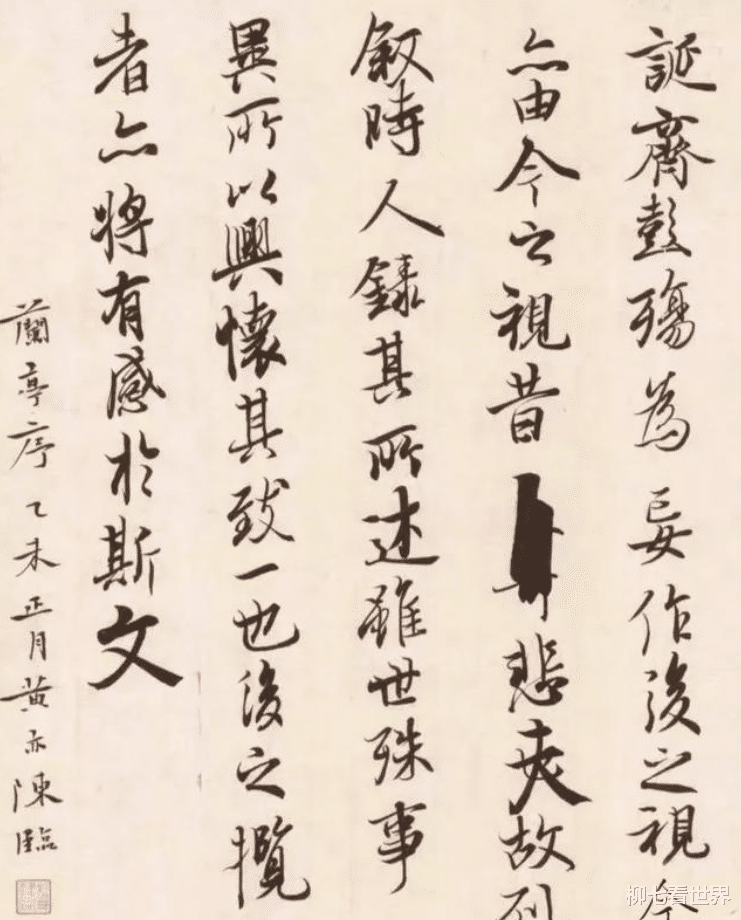 誕齊彭殤為妄作後之視今
亦由今之視昔悲夫故列
叙時人録其所述雖世殊事
異所以興懷其致一也後之攬
者亦將有感於斯文
蘭亭序乙未正月黄亦陳臨
柳七看世界